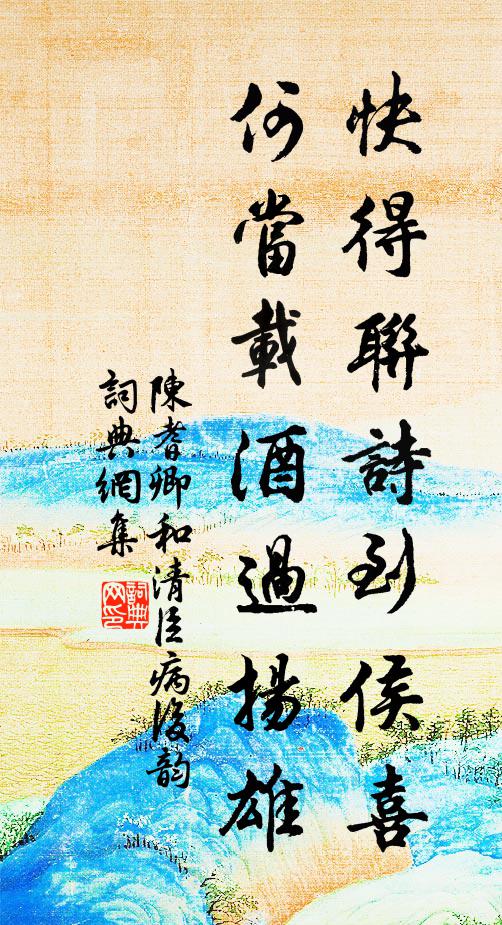 快得聯詩到侯喜
何當載酒過揚雄
陳耆卿和清臣病後韵
詞典網集
詞典